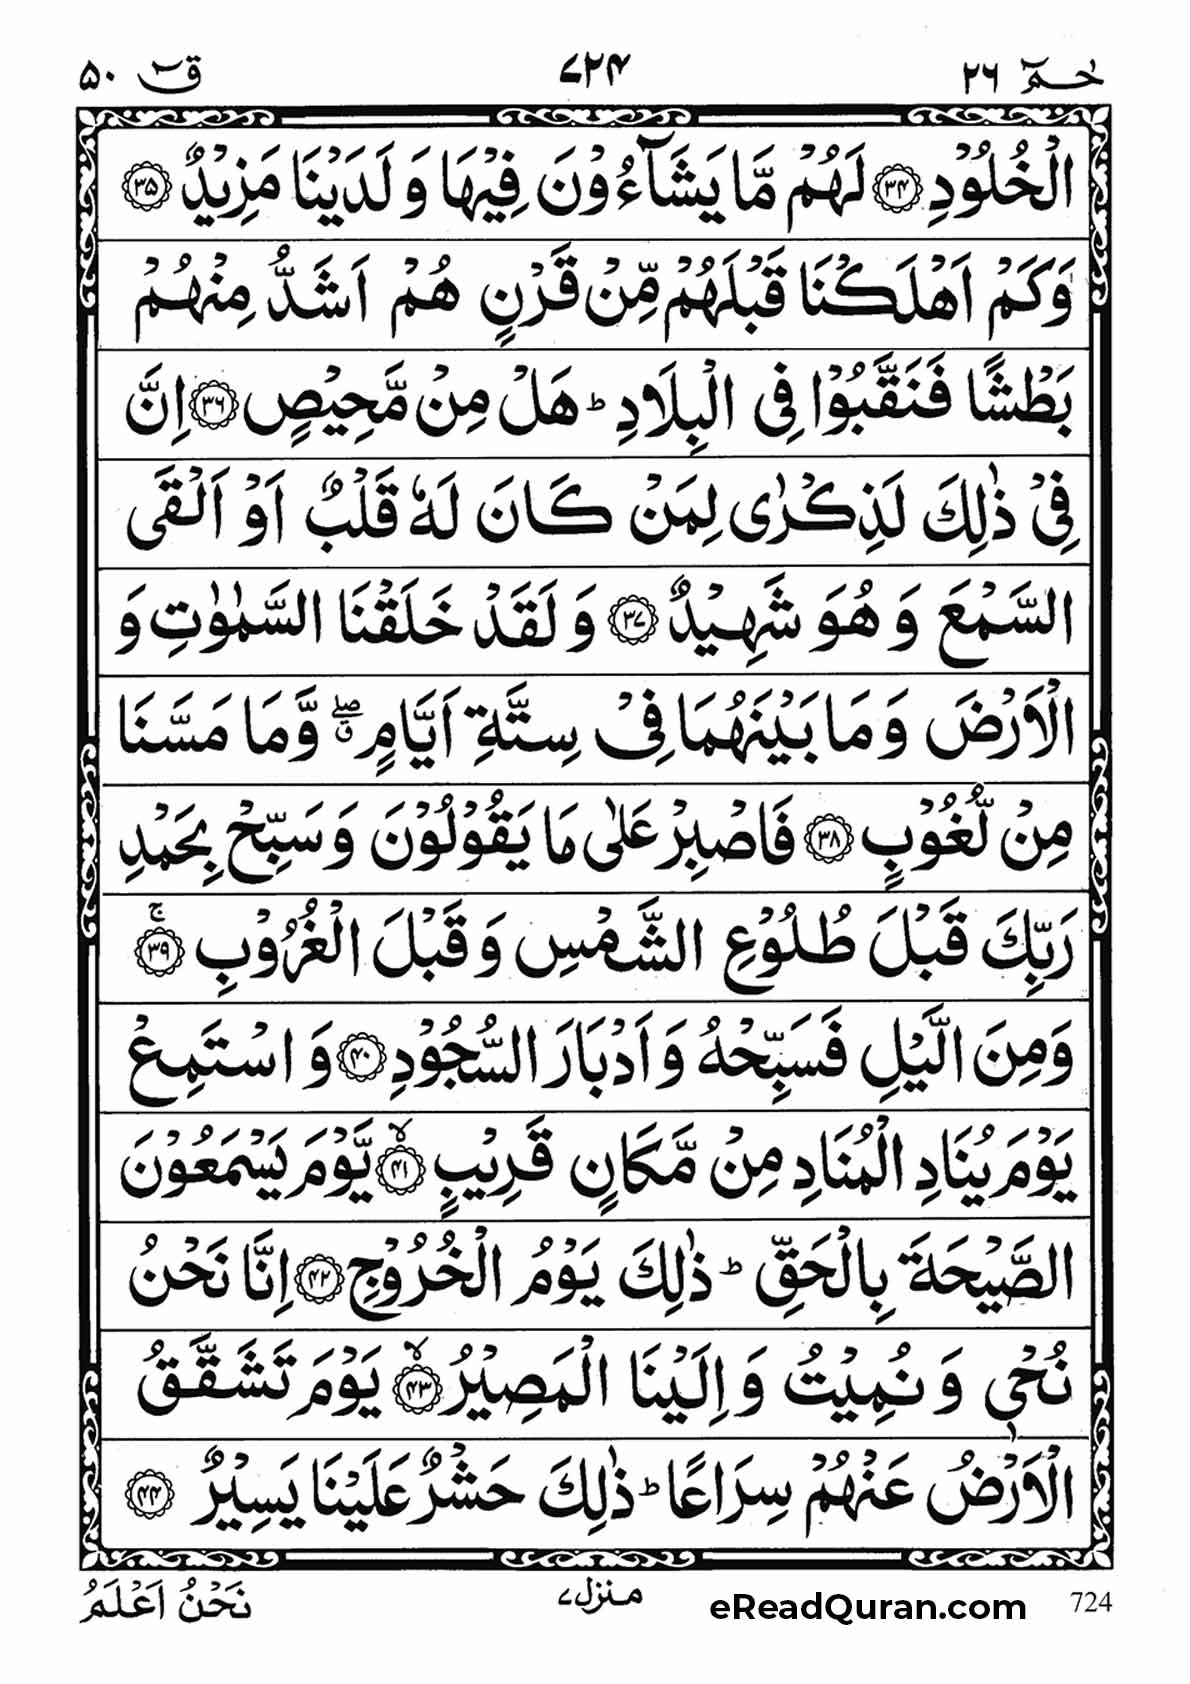 حٰمٓ ٢٦
٧٢٤
قٓ ٥٠
الۡخُلُوۡدِ ﴿۳۴﴾ لَهُمۡ مَّا يَشَآءُوۡنَ فِيۡهَا وَ لَدَيۡنَا مَزِيۡدٌ ﴿۳۵﴾
وَكَمۡ اَهۡلَـكۡنَا قَبۡلَهُمۡ مِّنۡ قَرۡنٍ هُمۡ اَشَدُّ مِنۡهُمۡ
بَطۡشًا فَنَقَّبُوۡا فِى الۡبِلَادِ ؕ هَلۡ مِنۡ مَّحِيۡصٍ ﴿۳۶﴾ اِنَّ
فِىۡ ذٰلِكَ لَذِكۡرٰى لِمَنۡ كَانَ لَهٗ قَلۡبٌ اَوۡ اَلۡقَى
السَّمۡعَ وَ هُوَ شَهِيۡدٌ ﴿۳۷﴾ وَ لَقَدۡ خَلَقۡنَا السَّمٰوٰتِ وَ
الۡاَرۡضَ وَ مَا بَيۡنَهُمَا فِىۡ سِتَّةِ اَيَّامٍ ۖ ق وَّمَا مَسَّنَا
مِنۡ لُّغُوۡبٍ ﴿۳۸﴾ فَاصۡبِرۡ عَلٰى مَا يَقُوۡلُوۡنَ وَ سَبِّحۡ بِحَمۡدِ
رَبِّكَ قَبۡلَ طُلُوۡعِ الشَّمۡسِ وَ قَبۡلَ الۡغُرُوۡبِ ۚ ﴿۳۹﴾
وَمِنَ الَّيۡلِ فَسَبِّحۡهُ وَ اَدۡبَارَ السُّجُوۡدِ ﴿۴۰﴾ وَ اسۡتَمِعۡ
يَوۡمَ يُنَادِ الۡمُنَادِ مِنۡ مَّكَانٍ قَرِيۡبٍ ۙ ﴿۴۱﴾ يَّوۡمَ يَسۡمَعُوۡنَ
الصَّيۡحَةَ بِالۡحَـقِّ ؕ ذٰلِكَ يَوۡمُ الۡخُـرُوۡجِ ﴿۴۲﴾ اِنَّا نَحۡنُ
نُحۡىٖ وَ نُمِيۡتُ وَ اِلَيۡنَا الۡمَصِيۡرُ ۙ ﴿۴۳﴾ يَوۡمَ تَشَقَّقُ
الۡاَرۡضُ عَنۡهُمۡ سِرَاعًا ؕ ذٰلِكَ حَشۡرٌ عَلَيۡنَا يَسِيۡرٌ ﴿۴۴﴾
نَحۡنُ اَعۡلَمُ
منزل ٧
eReadQuran.com
724